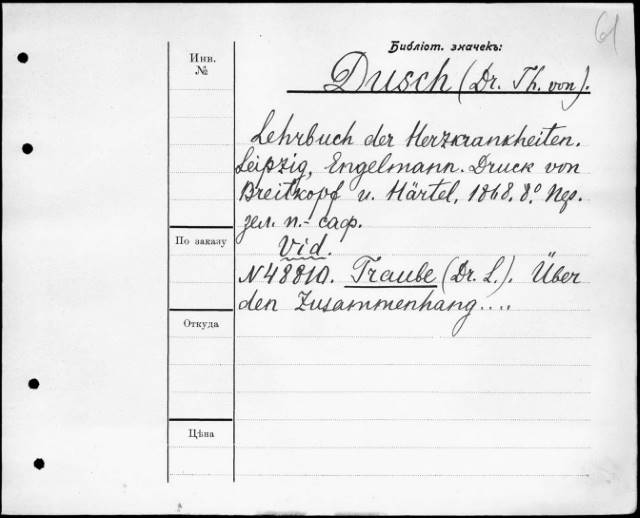 61
Библіот. значекъ:
Инв.
№
Dusch (Dr. Th. von).
Lehrbuch der Herzkrankheiten.
Leipzig, Engelmann. Druck von
Breitkopf u. Härtel, 1868. 8° Пер.
зел. п.- саф.
По заказу
Vid.
N 48810. Traube (Dr. L.). Über
den Zusammenhang....
Откуда
Цѣна